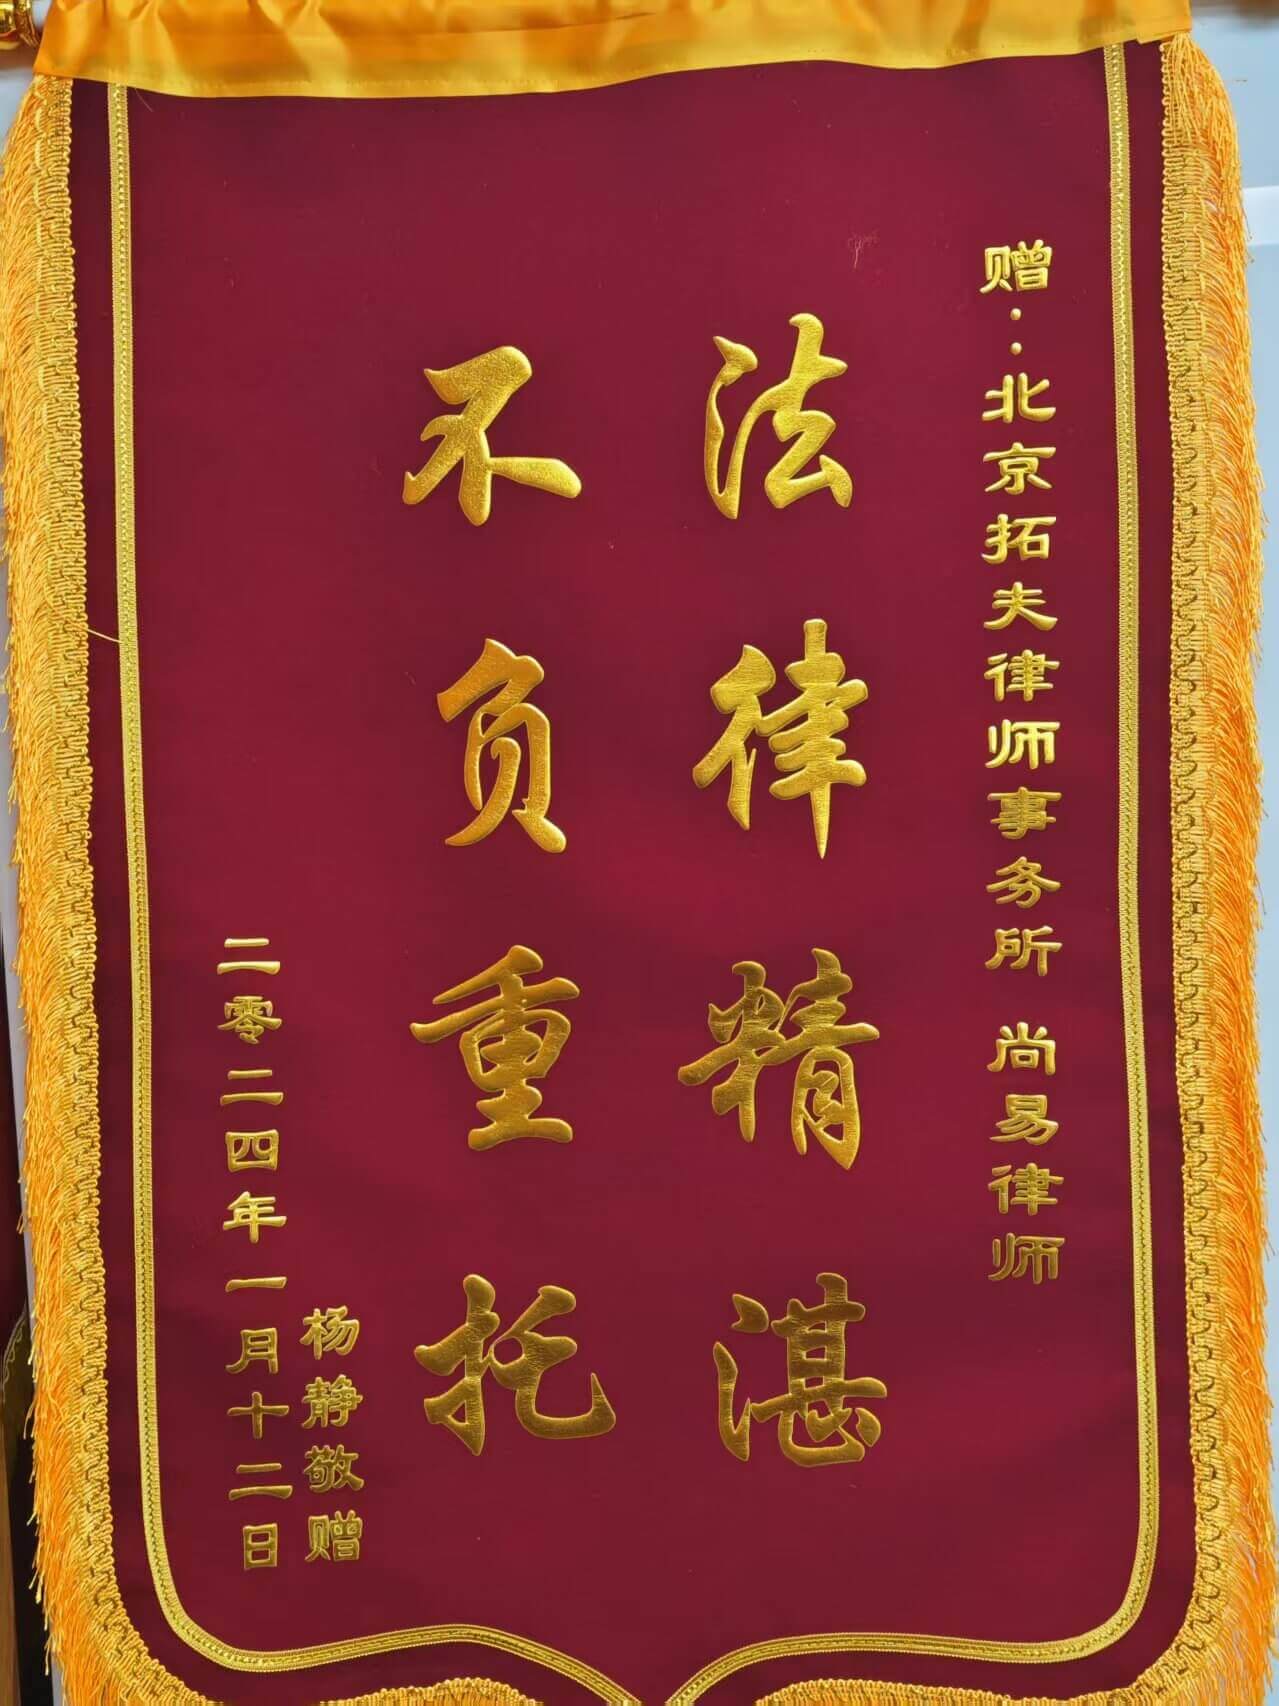 赠：北京拓夫律师事务所 尚易律师
法律精湛
不负重托
杨静敬赠
二零二四年一月十二日